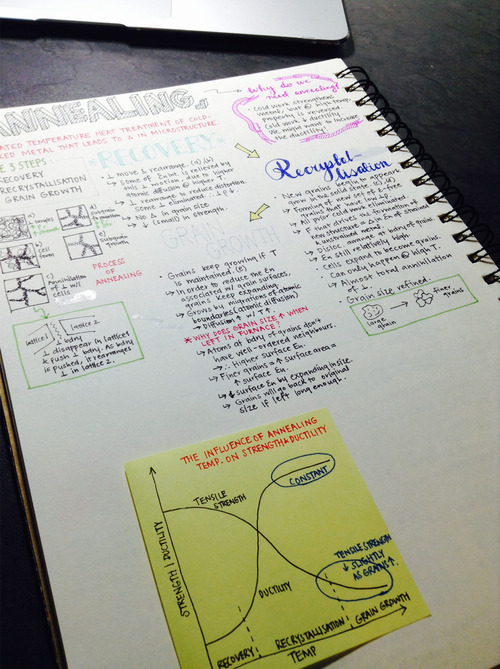 ANNEALING
ATED TEMPERATURE HEAT TREATMENT OF COLD-
KED METAL THAT LEADS TO Δ IN MICROSTRUCTURE.
3 STEPS:
RECOVERY
RECRYSTALLISATION
GRAIN GROWTH
PROCESS
OF
ANNEALING
lattice 1
lattice 2
bdry
⊥ disappear in lattices
* push ⊥ bdry. As bdry
is pushed, it rearranges
⊥ in lattice 2.
RECOVERY
⊥ move & rearrange. (a)(b)
Some of E int. is relieved by
this ⊥ motion due to higher
atomic diffusion @ higher T.
⊥ rearrange to reduce distortion.
Some ⊥ eliminated ∴ ⊥ρ↓.
No Δ in grain size
↓ (small) in strength.
Why do we
need annealing?
Cold work strengthens
metal, but @ high temp.
property is reversed.
Cold work ↓ ductility.
We might want to increase
the ductility!
Recrystal-
lisation
New grains begin to appear
& grow in the solid state. (c)(d)
These new grains
have low ⊥ρ
prior cold work
Disloc. annihilate at bdry of grains.
En still relatively high.
Cells expand to become grains.
Can only happen @ high T.
Almost total annihilation
of ⊥.
Grain size refined.
large
grain
finer
grains
GRAIN
GROWTH
Grains keep growing if T
is maintained. (e)
In order to reduce the En
associated w/ grain surfaces,
grains keep expanding.
Grows by migrations of atomic
boundaries (atomic diffusion)
Diffusion ↑ w/ T↑.
* WHY DOES GRAIN SIZE ↑ WHEN
LEFT IN FURNACE?
Atoms at bdry of grains don't
have well-ordered neighbours.
∴ Higher surface En.
Finer grains = ↑ surface area =
↑ surface En.
↓ surface En by expanding in size.
Grains will go back to original
size if left long enough.
THE INFLUENCE OF ANNEALING
TEMP. ON STRENGTH & DUCTILITY
CONSTANT
TENSILE
STRENGTH
STRENGTH | DUCTILITY
TENSILE STRENGTH
↓ SLIGHTLY
AS GRAINS ↑.
DUCTILITY
RECOVERY
RECRYSTALLISATION
GRAIN GROWTH
TEMP